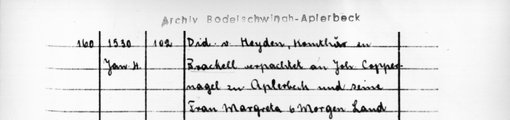 Archiv Bodelschwingh-Aplerbeck
160 1530 102 Did. v. Heyden, Komthur en
Jan. 4. Brackell verpachtet an Joh Copper-
nagel zu Aplerbeck und seine
Frau Margreta 6 Morgen Land